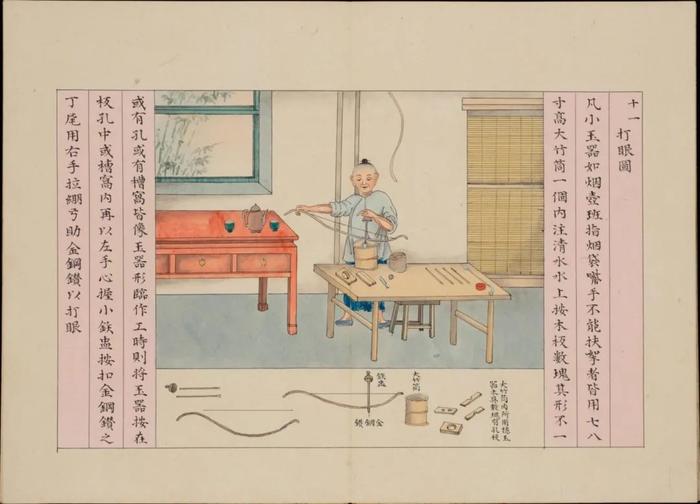 十一打眼圖
凡小玉器如烟壺班指烟袋嘴手不能扶拏者皆用七八
寸高大竹筒一個內注清水水上按木板數塊其形不一
或有孔或有槽窩皆像玉器形臨作工時則將玉器按在
板孔中或槽窩內再以左手心握小鉄盅按扣金鋼鑽之
丁尾用右手拉綳弓助金鋼鑽以打眼
大竹筒內所用穩玉
器木具數塊有孔板
大竹筒
鉄盅
金鋼鑽